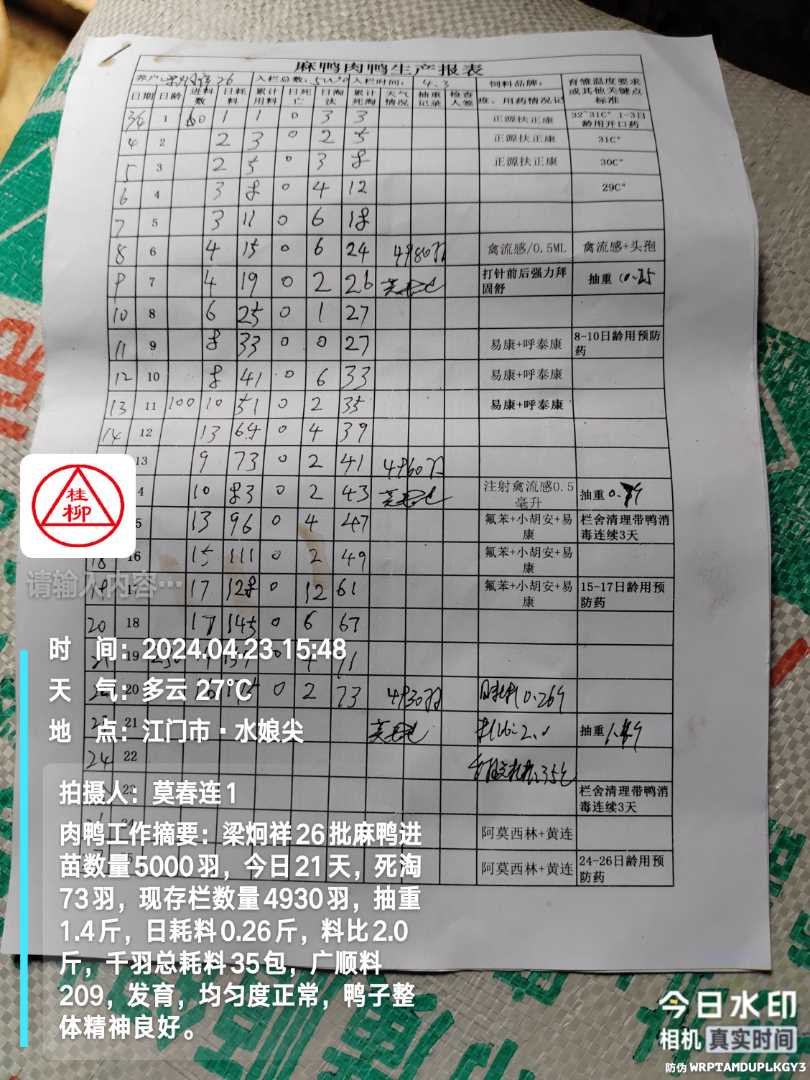 麻鸭肉鸭生产报表
养户 26 入栏总数: 入栏时间: 4.3 饲料品牌: 育雏温度要求或其他关键点标准
日期 日龄 进料数 日耗料 累计用料 日死亡 日淘汰 累计死淘 天气情况 抽重记录 检查人签 用药情况记
3/4 1 60 1 1 0 3 3 正源扶正康 32~31C° 1-3日龄用开口药
4 2 2 3 0 2 5 正源扶正康 31C°
5 3 2 5 0 3 8 正源扶正康 30C°
6 4 3 8 0 4 12 29C°
7 5 3 11 0 6 18
8 6 4 15 0 6 24 4980羽 禽流感/0.5ML 禽流感+头孢
9 7 4 19 0 2 26 打针前后强力拜固舒 抽重
10 8 6 25 0 1 27
11 9 8 33 0 0 27 易康+呼泰康 8-10日龄用预防药
12 10 8 41 0 6 33 易康+呼泰康
13 11 100 10 51 0 2 35 易康+呼泰康
14 12 13 64 0 4 39
13 9 73 0 2 41 4960羽
4 10 83 0 2 43 注射禽流感0.5毫升 抽重
5 13 96 0 4 47 氟苯+小胡安+易康 栏舍清理带鸭消毒连续3天
18 16 15 111 0 2 49 氟苯+小胡安+易康
17 17 128 0 12 61 氟苯+小胡安+易康 15-17日龄用预防药
20 18 17 145 0 6 67
19 71
20 0 2 73 4930羽 日耗料0.26斤
21 料比:2.0 抽重1.4斤
24 22
23 栏舍清理带鸭消毒连续3天
24 阿莫西林+黄连
阿莫西林+黄连 24-26日龄用预防药
桂柳
请输入内容···
时 间：2024.04.23 15:48
天 气：多云 27℃
地 点：江门市·水娘尖
拍摄人：莫春连1
肉鸭工作摘要：梁炯祥26批麻鸭进
苗数量5000羽，今日21天，死淘
73羽，现存栏数量4930羽，抽重
1.4斤，日耗料0.26斤，料比2.0
斤，千羽总耗料35包，广顺料
209，发育，均匀度正常，鸭子整
体精神良好。
今日水印
相机 真实时间
防伪 WRPTAMDUPLKGY3